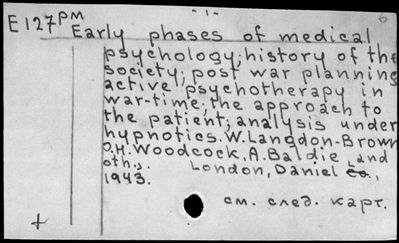 - 1 -
6
E127PM Early phases of medical
psychology; history of the
society; post war planning
active psychotherapy in
war-time; the approach to
the patient; analysis under
hypnotics. W. Langdon-Brown
O.H. Woodcock, A. Baldie and
oth.. London, Daniel Co.,
1943.
см. след. карт.
+